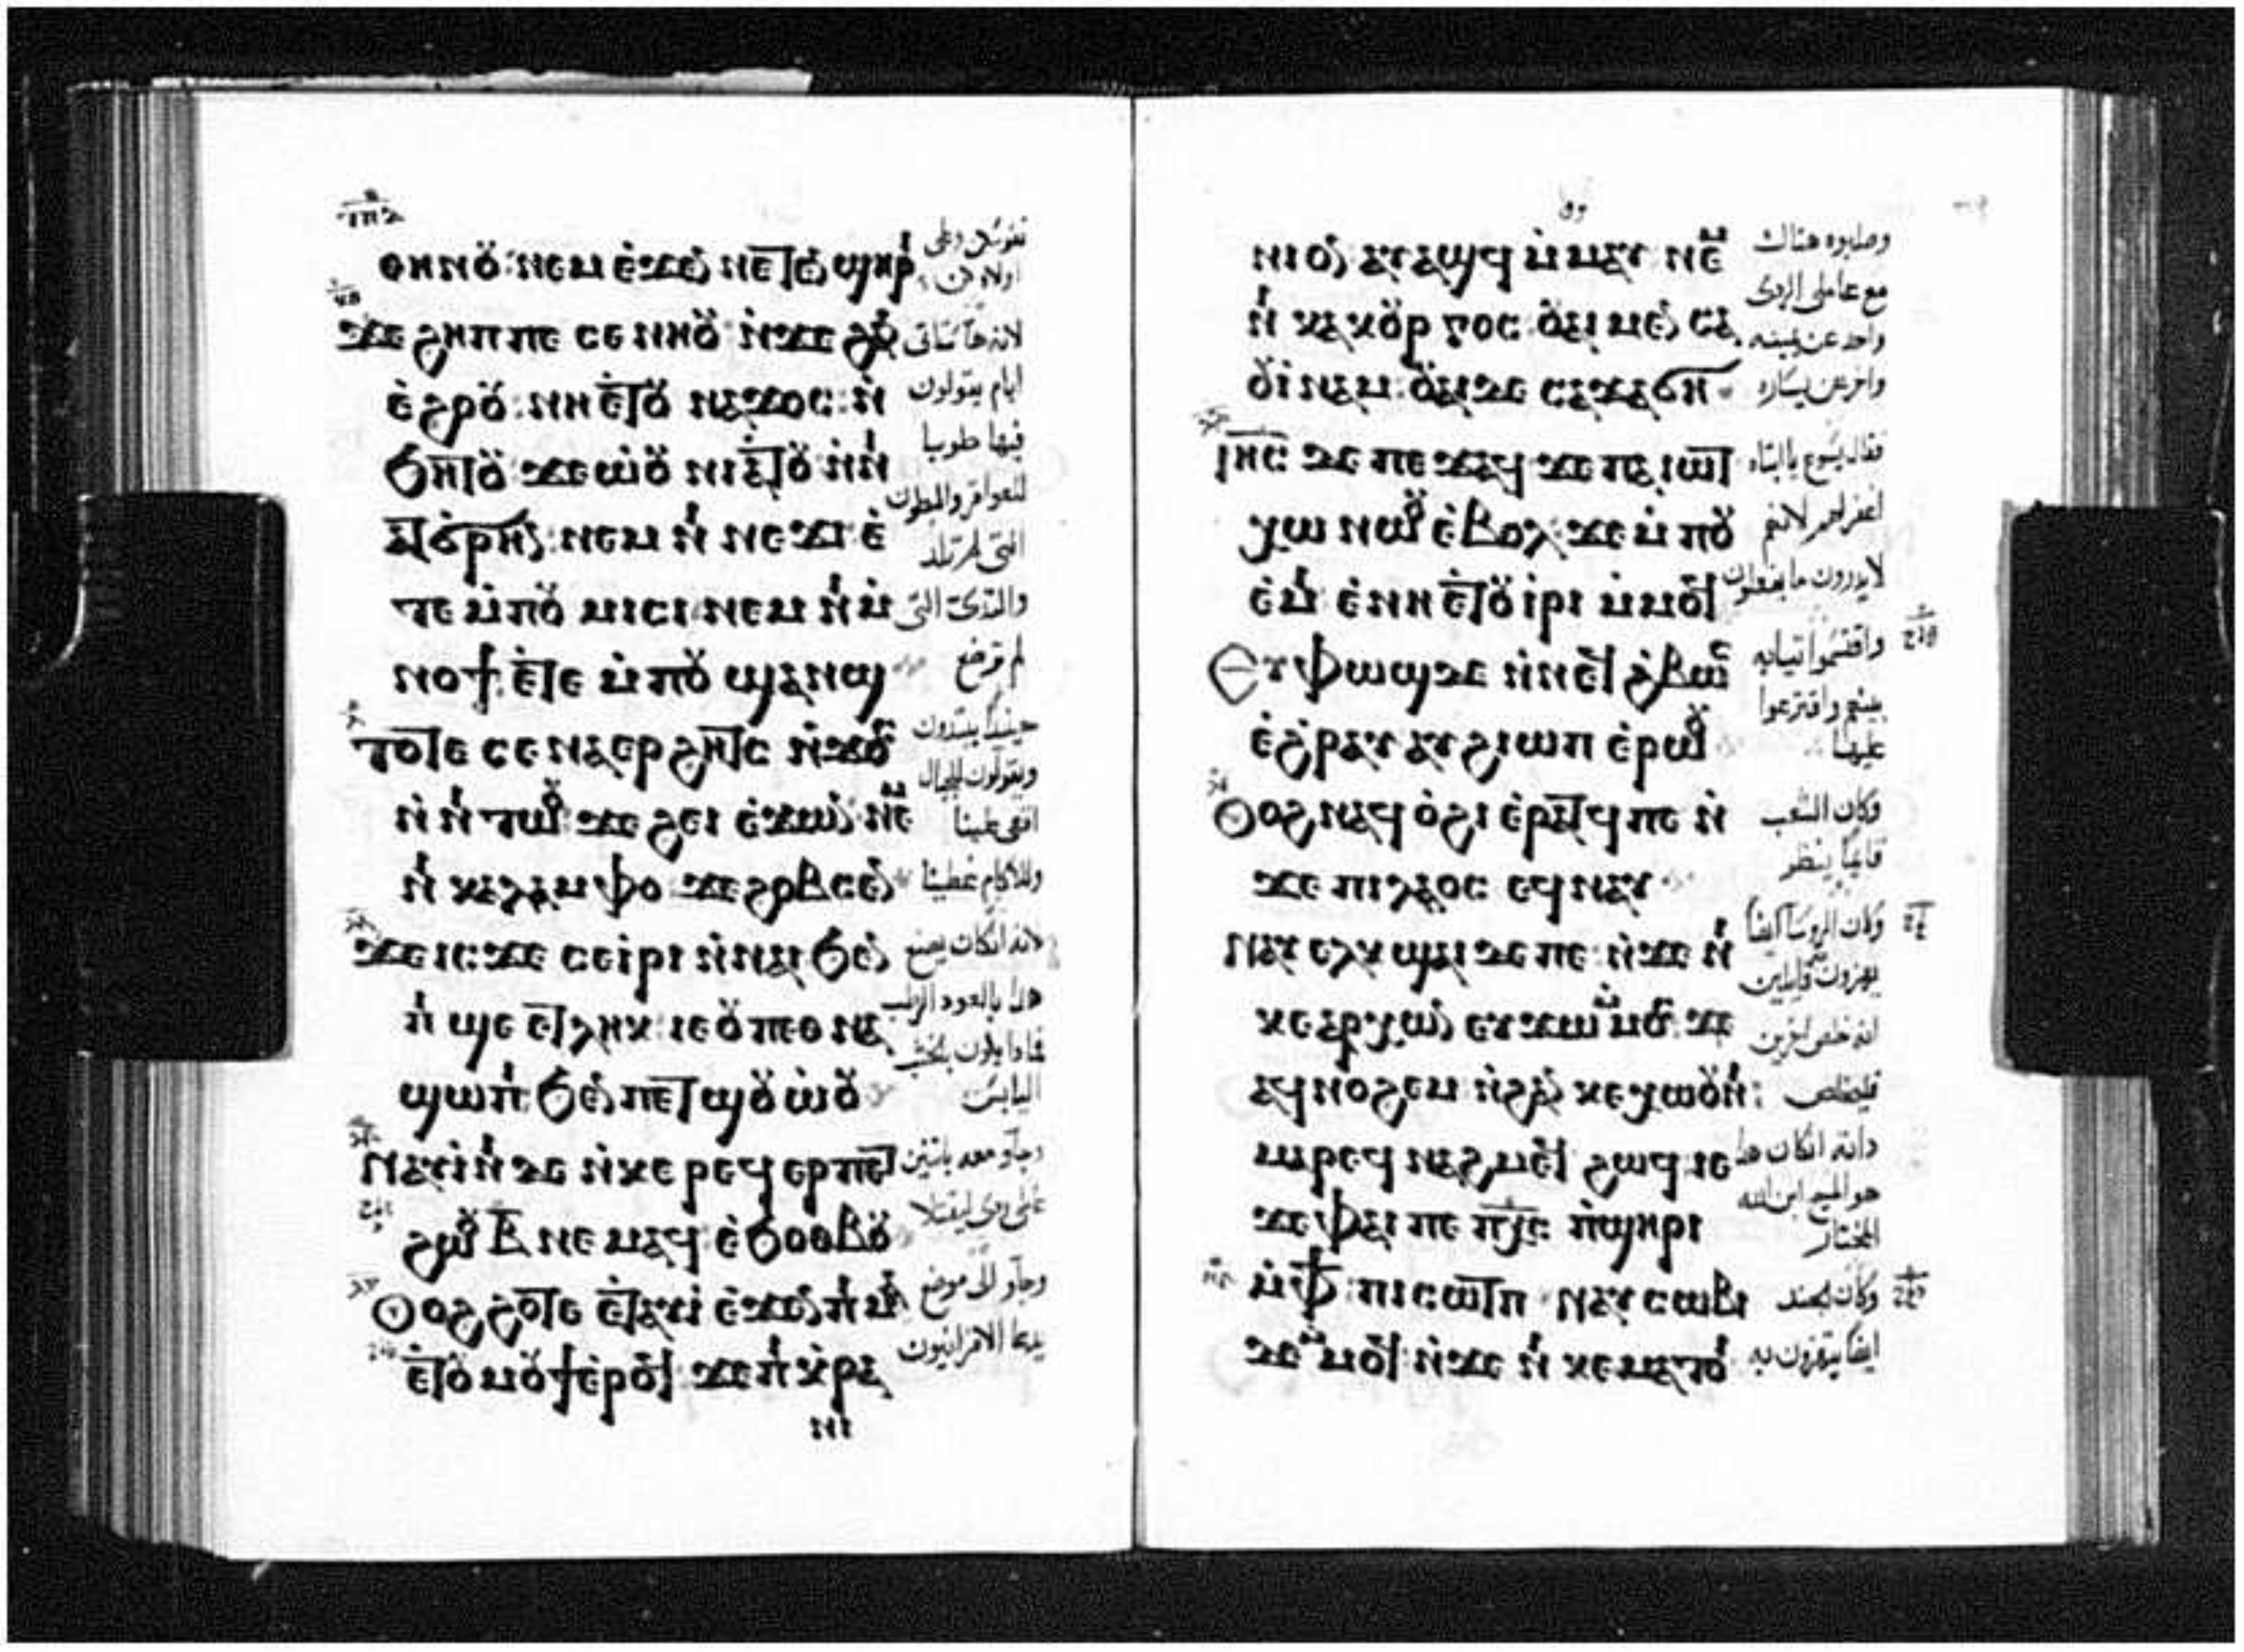 ⲑⲏⲛⲟⲩ ⲛⲉⲙ ⲉϫⲉⲛ ⲛⲉⲧⲉⲛϣⲏⲣⲓ
ϫⲉ ϩⲏⲡⲡⲉ ⲥⲉⲛⲏⲟⲩ ⲛ̀ϫⲉ ϩⲁⲛ
ⲉ̀ϩⲟⲟⲩ ⲛⲏ ⲉ̀ⲧⲟⲩ ⲛⲁϫⲟⲥ ⲛ̀
ϧⲏⲧⲟⲩ ϫⲉ ⲱ̀ⲟⲩ ⲛⲓⲁ̀ⲧⲟⲩ ⲛ̀ⲛⲓ
ⲛⲉⲙ ⲛⲓ ⲛⲉϫⲓ ⲉ̀
ⲧⲉ ⲙ̀ⲡⲟⲩ ⲙⲓⲥⲓ ⲛⲉⲙ ⲛⲓ ⲙ̀
ⲛⲟϯ ⲉ̀ⲧⲉ ⲙ̀ⲡⲟⲩ ϣⲁⲛϣ
ⲧⲟⲧⲉ ⲥⲉⲛⲁⲉⲣϩⲏⲧⲥ ⲛ̀ϫⲟⲥ
ⲛ̀ ⲛⲓ ⲧⲱⲟⲩ ϫⲉ ϩⲉⲓ ⲉ̀ϫⲱⲛ ⲛⲉⲙ
ⲛⲓ ⲕⲁⲗⲁⲙⲫⲟ ϫⲉ ϩⲟⲃⲥⲉⲛ
ϫⲉ ⲓⲥϫⲉ ⲥⲉⲓ̀ⲣⲓ ⲛ̀ⲛⲁⲓ ϧⲉⲛ
ⲡⲓ ϣⲉ ⲉⲧⲗⲏⲕ ⲓⲉ ⲟⲩ ⲡⲉⲑ ⲛⲁ
ϣⲱⲡⲓ ϧⲉⲛ ⲡⲉⲧϣⲟⲩⲱ̀ⲟⲩ
ⲛⲁⲩⲓ̀ⲛⲓ ⲇⲉ ⲛ̀ⲕⲉ ⲣⲉϥ ⲉⲣⲡⲉⲧ
ϩⲱⲟⲩ ⲃ̅ ⲛⲉⲙⲁϥ ⲉ̀ϧⲟⲑⲃⲟⲩ
ⲟⲩⲟϩ ϩⲟⲧⲉ ⲉ̀ⲧⲁⲩⲓ̀ ⲉ̀ϫⲉⲛ ⲡⲓ ⲙⲁ
ⲉ̀ⲧⲟⲩ ⲙⲟⲩϯ ⲉ̀ⲣⲟϥ ϫⲉ ⲡⲓ ⲕ̀ⲣⲁ
ⲛⲓ
نفوسكن وعلى
اولادكن
لانه ها ستاتى
ايام يقولون
فيها طوبيا
للعواقر والبطون
التى لم تلد
والثدى التى
لم ترضع
حينيذًا يبتدون
ويقولون للجبال
اقعى علينا
وللاكام غطينا
لانه ان كان يصنع
هذا بالعود الرطب
فماذا يكون بالخشب
اليابس
وجاو معه باثنين
وجاو الى موضع
ⲛⲓⲟⲛ ⲁⲩⲁϣϥ ⲙ̀ⲙⲁⲩ ⲛⲉⲙ
ⲛⲓ ⲕⲁⲕⲟⲩⲣⲅⲟⲥ ⲟⲩⲁⲓ ⲙⲉⲛ ⲥⲁ
ⲟⲩⲓ̀ⲛⲁⲙ ⲟⲩⲁⲓ ⲇⲉ ⲥⲁϫⲁϭⲏ
ⲓⲏⲥ ⲇⲉ ⲡⲉϫⲁϥ ϫⲉ ⲡⲁⲓⲱⲧ
ⲭⲱ ⲛⲱⲟⲩ ⲉ̀ⲃⲟⲗ ϫⲉ ⲙ̀ⲡⲟⲩ
ⲉ̀ⲙⲓ ⲉ̀ⲛⲏ ⲉ̀ⲧⲟⲩⲓ̀ⲣⲓ ⲙ̀ⲙⲟϥ
ⲉⲩⲫⲱϣ ⲇⲉ ⲛ̀ⲛⲉϥ ϩ̀ⲃⲱⲥ
ⲉ̀ϩ̀ⲣⲁⲩ ⲁⲩϩⲓⲱⲡ ⲉ̀ⲣⲱⲟⲩ
ⲟⲩⲟϩ ⲛⲁϥ ⲟ̀ϩⲓ ⲉ̀ⲣⲁⲧϥ ⲡⲉ ⲛ̀
ϫⲉ ⲡⲓⲗⲁⲟⲥ ⲉϥⲛⲁⲩ
ⲛⲁⲩ ⲉⲗⲕϣⲁⲓ ⲇⲉ ⲡⲉ ⲛ̀ϫⲉ ⲛⲓ
ⲕⲉⲁⲣⲭⲱⲛ ⲉⲩϫⲱ ⲙ̀ⲙⲟⲥ ϫⲉ
ⲁϥⲛⲟϩⲉⲙ ⲛ̀ϩⲁⲛ ⲕⲉⲭⲱⲟⲩⲛⲓ
ⲙⲁⲣⲉϥ ⲛⲁϩⲙⲉϥ ϩⲱϥ ⲓⲥ
ϫⲉ ⲫⲁⲓ ⲡⲉ ⲡⲭ̅ⲥ̅ ⲡ̀ϣⲏⲣⲓ
ⲙ̀ⲫϯ ⲡⲓⲥⲱⲧⲡ ⲛⲁⲩⲥⲱⲃⲓ
ⲇⲉ ⲙ̀ⲙⲟϥ ⲛ̀ϫⲉ ⲛⲓ ⲕⲉⲙⲁⲧⲟⲓ
وصلبوه هناك
مع عاملى الردى
واحد عن يمينه
واخر عن يساره
فقال يسوع يا ابتاه
اغفر لهم لانهم
لا يدرون ما يفعلون
واقتسموا ثيابه
بينهم واقترعوا
عليها
وكان الشعب
قايمًا ينظر
وكان الروسا ايضًا
يهزون قايلين
انه خلص اخرين
فليخلص
وكان الجند
ايضًا يتهزون به